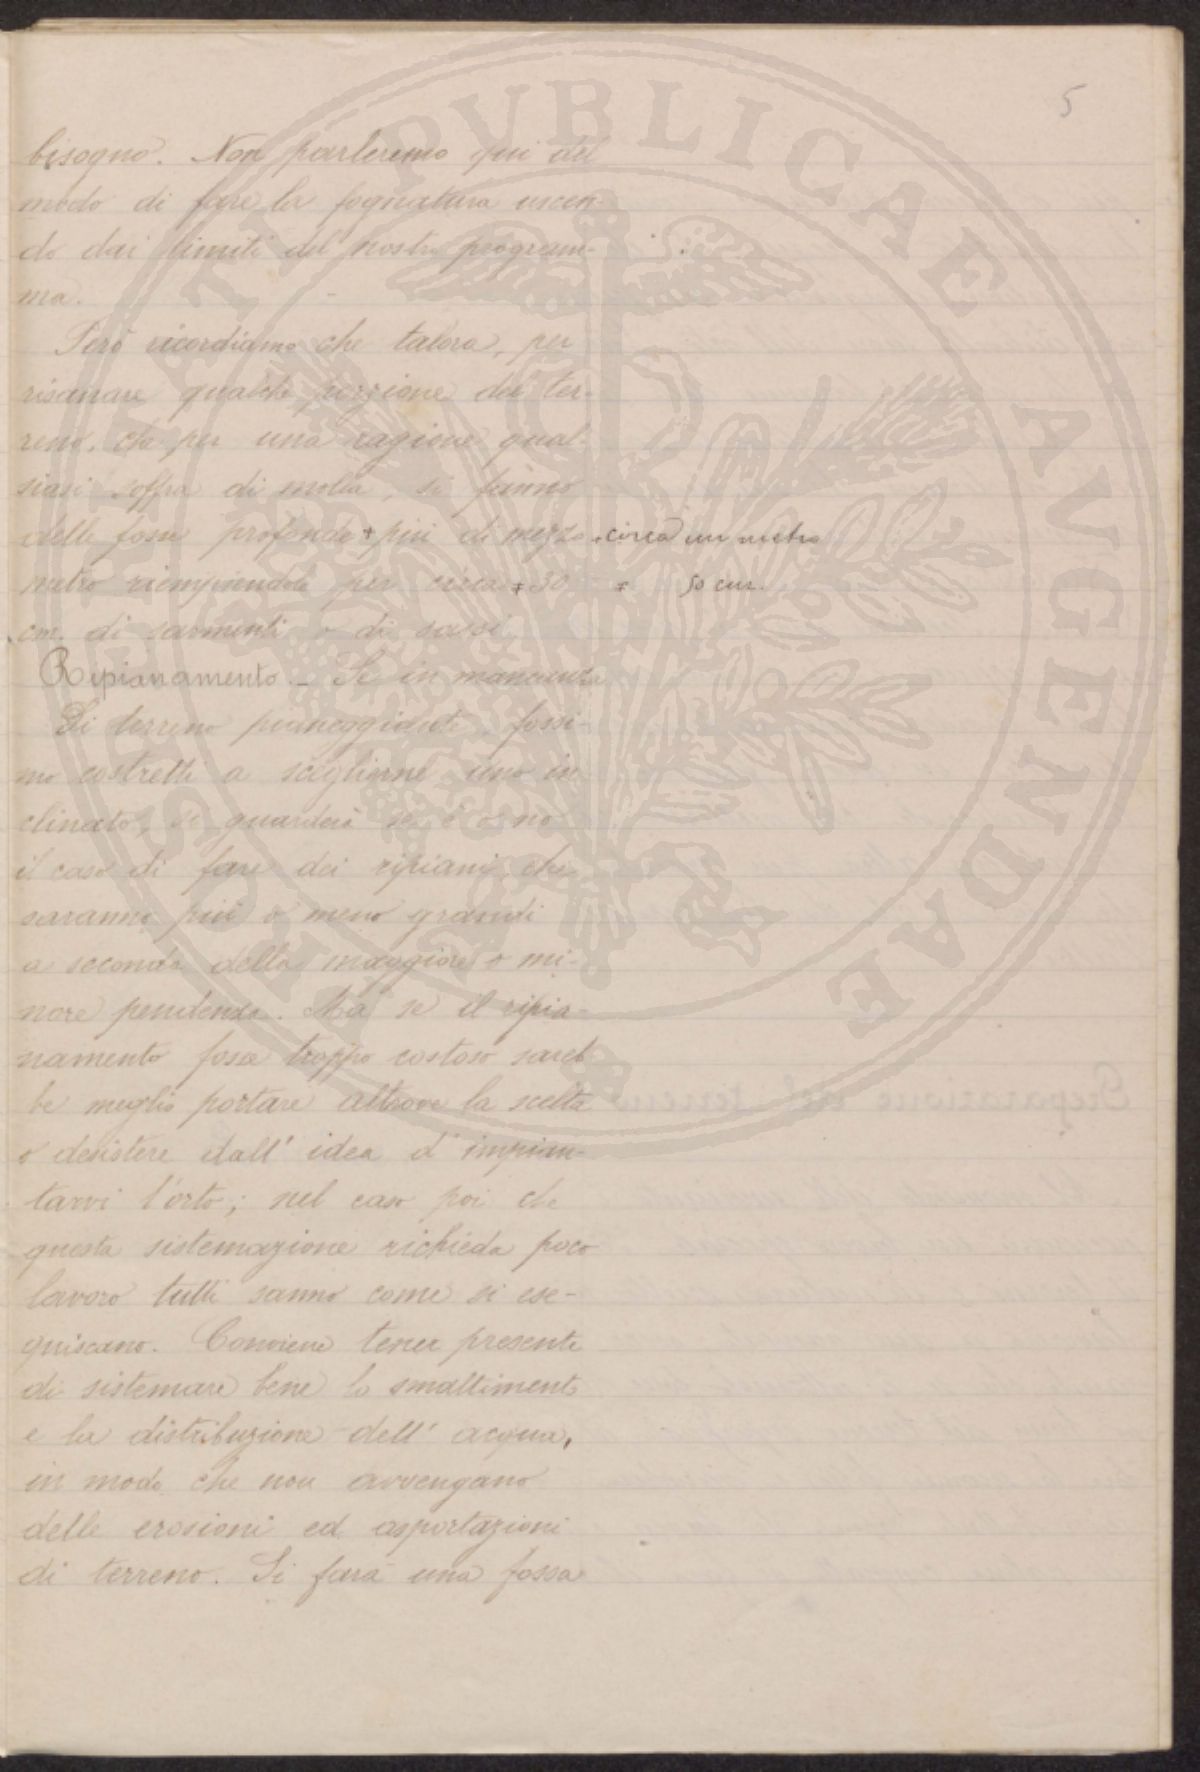 5
bisogno. Non parleremo qui del
modo di fare la fognatura uscen-
do dai limiti del nostro program-
ma.
Però ricordiamo che talora, per
risanare qualche porzione del ter-
reno, che per una ragione qual-
siasi soffra di molta, si fanno
delle fosse profonde + più di mezzo + circa un metro
metro riempiendole per circa + 30 + 50 cm.
cm. di sarmenti o di sassi.
Ripianamento. - Se in mancanza
di terreno pianeggiante, fossi-
mo costretti a sceglierne uno in-
clinato, si guarderà se è o no
il caso di fare dei ripiani, che
saranno più o meno grandi
a seconda della maggiore o mi-
nore pendenza. Ma se il ripia-
namento fosse troppo costoso sareb-
be meglio portare altrove la scelta
o desistere dall' idea d' impian-
tarvi l'orto; nel caso poi che
questa sistemazione richieda poco
lavoro tutti sanno come si ese-
guiscano. Conviene tener presente
di sistemare bene lo smaltimento
e la distribuzione dell' acqua,
in modo che non avvengano
delle erosioni ed asportazioni
di terreno. Si farà una fossa
PVBLICAE AVGENDAE